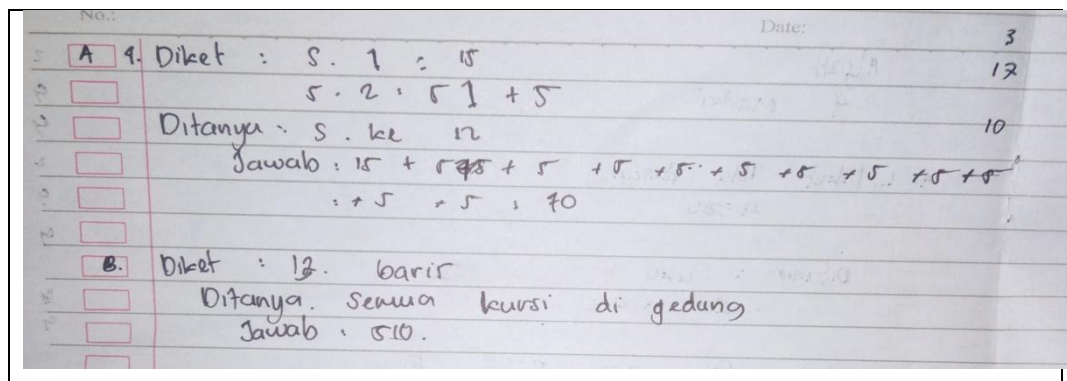 No.:
Date:
3
A 4. Diket : S. 1 : 15
17
S. 2 : S 1 + 5
Ditanya : S. ke 12
10
Jawab : 15 + 5 + 5 + 5 + 5 + 5 + 5 + 5 + 5 + 5 + 5
: + 5 + 5 : 70
B. Diket : 12. baris
Ditanya. Semua kursi di gedung
Jawab : 510.